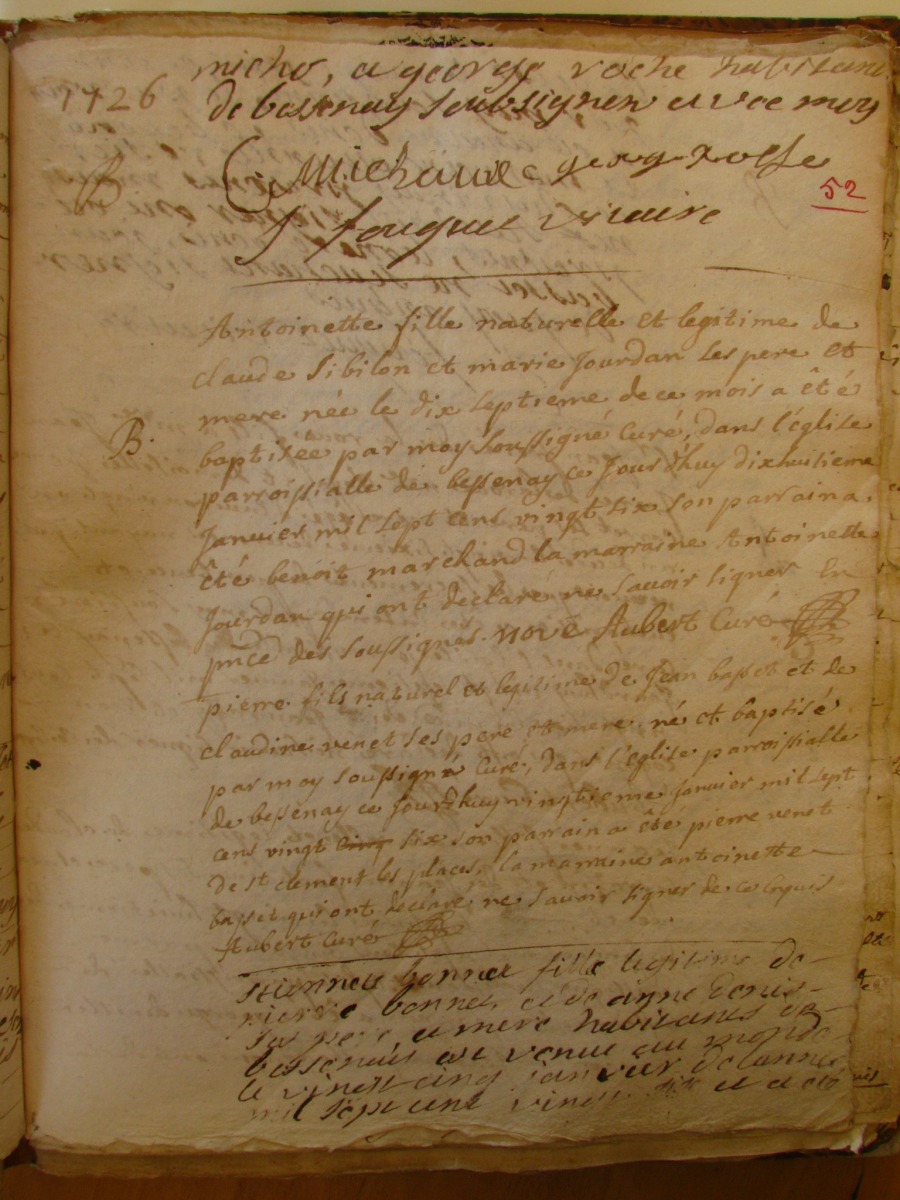 1726
micho, a george roche habitans
de bessenay soubsignez avec moy
C Michaude george rosse
52
J fouquet vicaire
Antoinette fille naturelle et legitime de
claude Sibilon et marie Jourdan ses pere et
mere née le dix septieme de ce mois a êté
B.
baptisée par moy soussigné Curé, dans l'église
parroissialle de bessenay ce Jourdhuy dixhuitieme
Janvier mil sept cens vingt six son parrain a
êté benoit marchand la marraine Antoinette
Jourdan qui ont declaré ne savoir signer En
pnce des soussignés. Aubert Curé
pierre fils naturel et legitime de Jean basset et de
claudine venet ses pere et mere, né et baptisé
par moy soussigné Curé, dans l'eglise parroissialle
de bessenay ce Jourdhuy vingtieme Janvier mil sept
cens vingt cinq six son parrain a ête pierre venet
de st clement les places, la marraine antoinette
basset qui ont déclaré ne savoir signer de ce Enquis
Aubert Curé
stiennete bonnet fille legitime de
pierre bonnet et de anne denis
ses pere et mere habitants de
bessenais est venue au monde
le vingt cinq janvier de lannee
mil sept cent vingt six et a eté